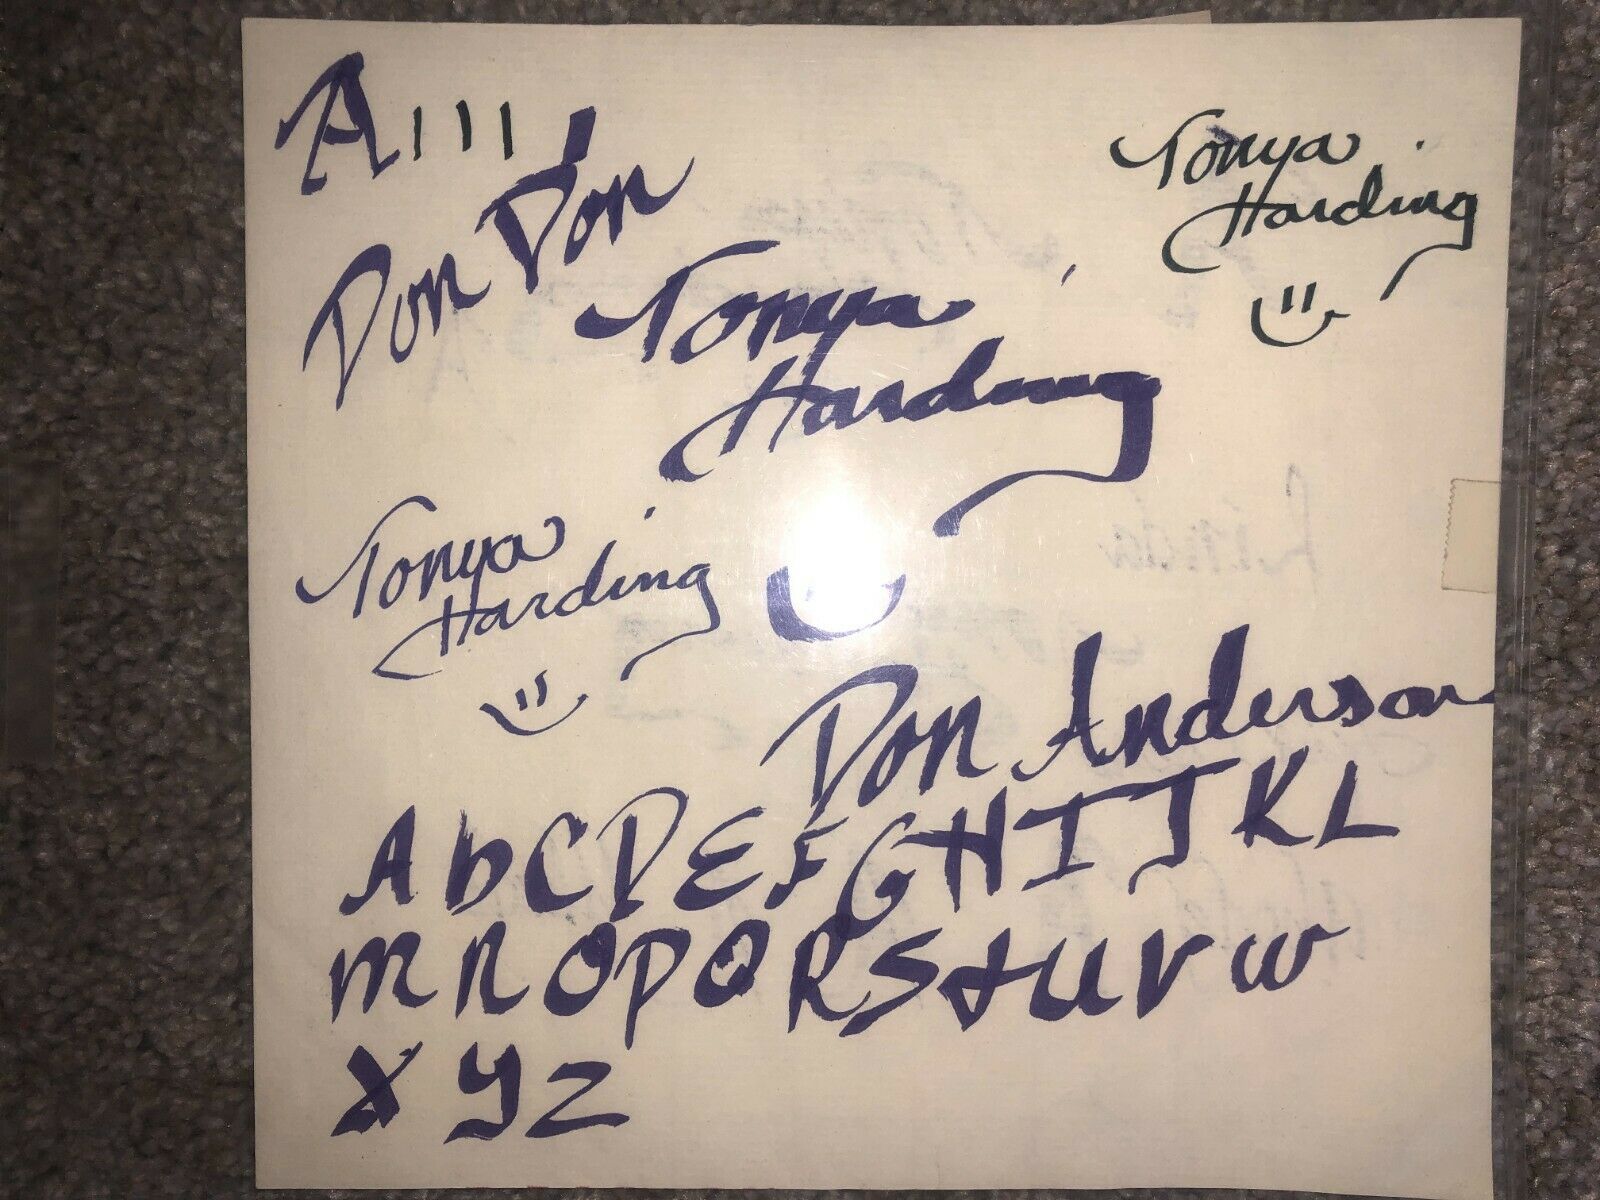 A
Don Don
Tonya
Harding
Tonya
Harding
Tonya
Harding
Don Anderson
A b C D E F G H I J K L
m n O P Q R S t u v w
X y z
Linda